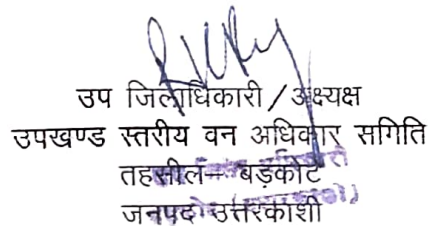 उप जिलाधिकारी / अध्यक्ष
उपखण्ड स्तरीय वन अधिकार समिति
तहसील– बड़कोट
जनपद उत्तरकाशी